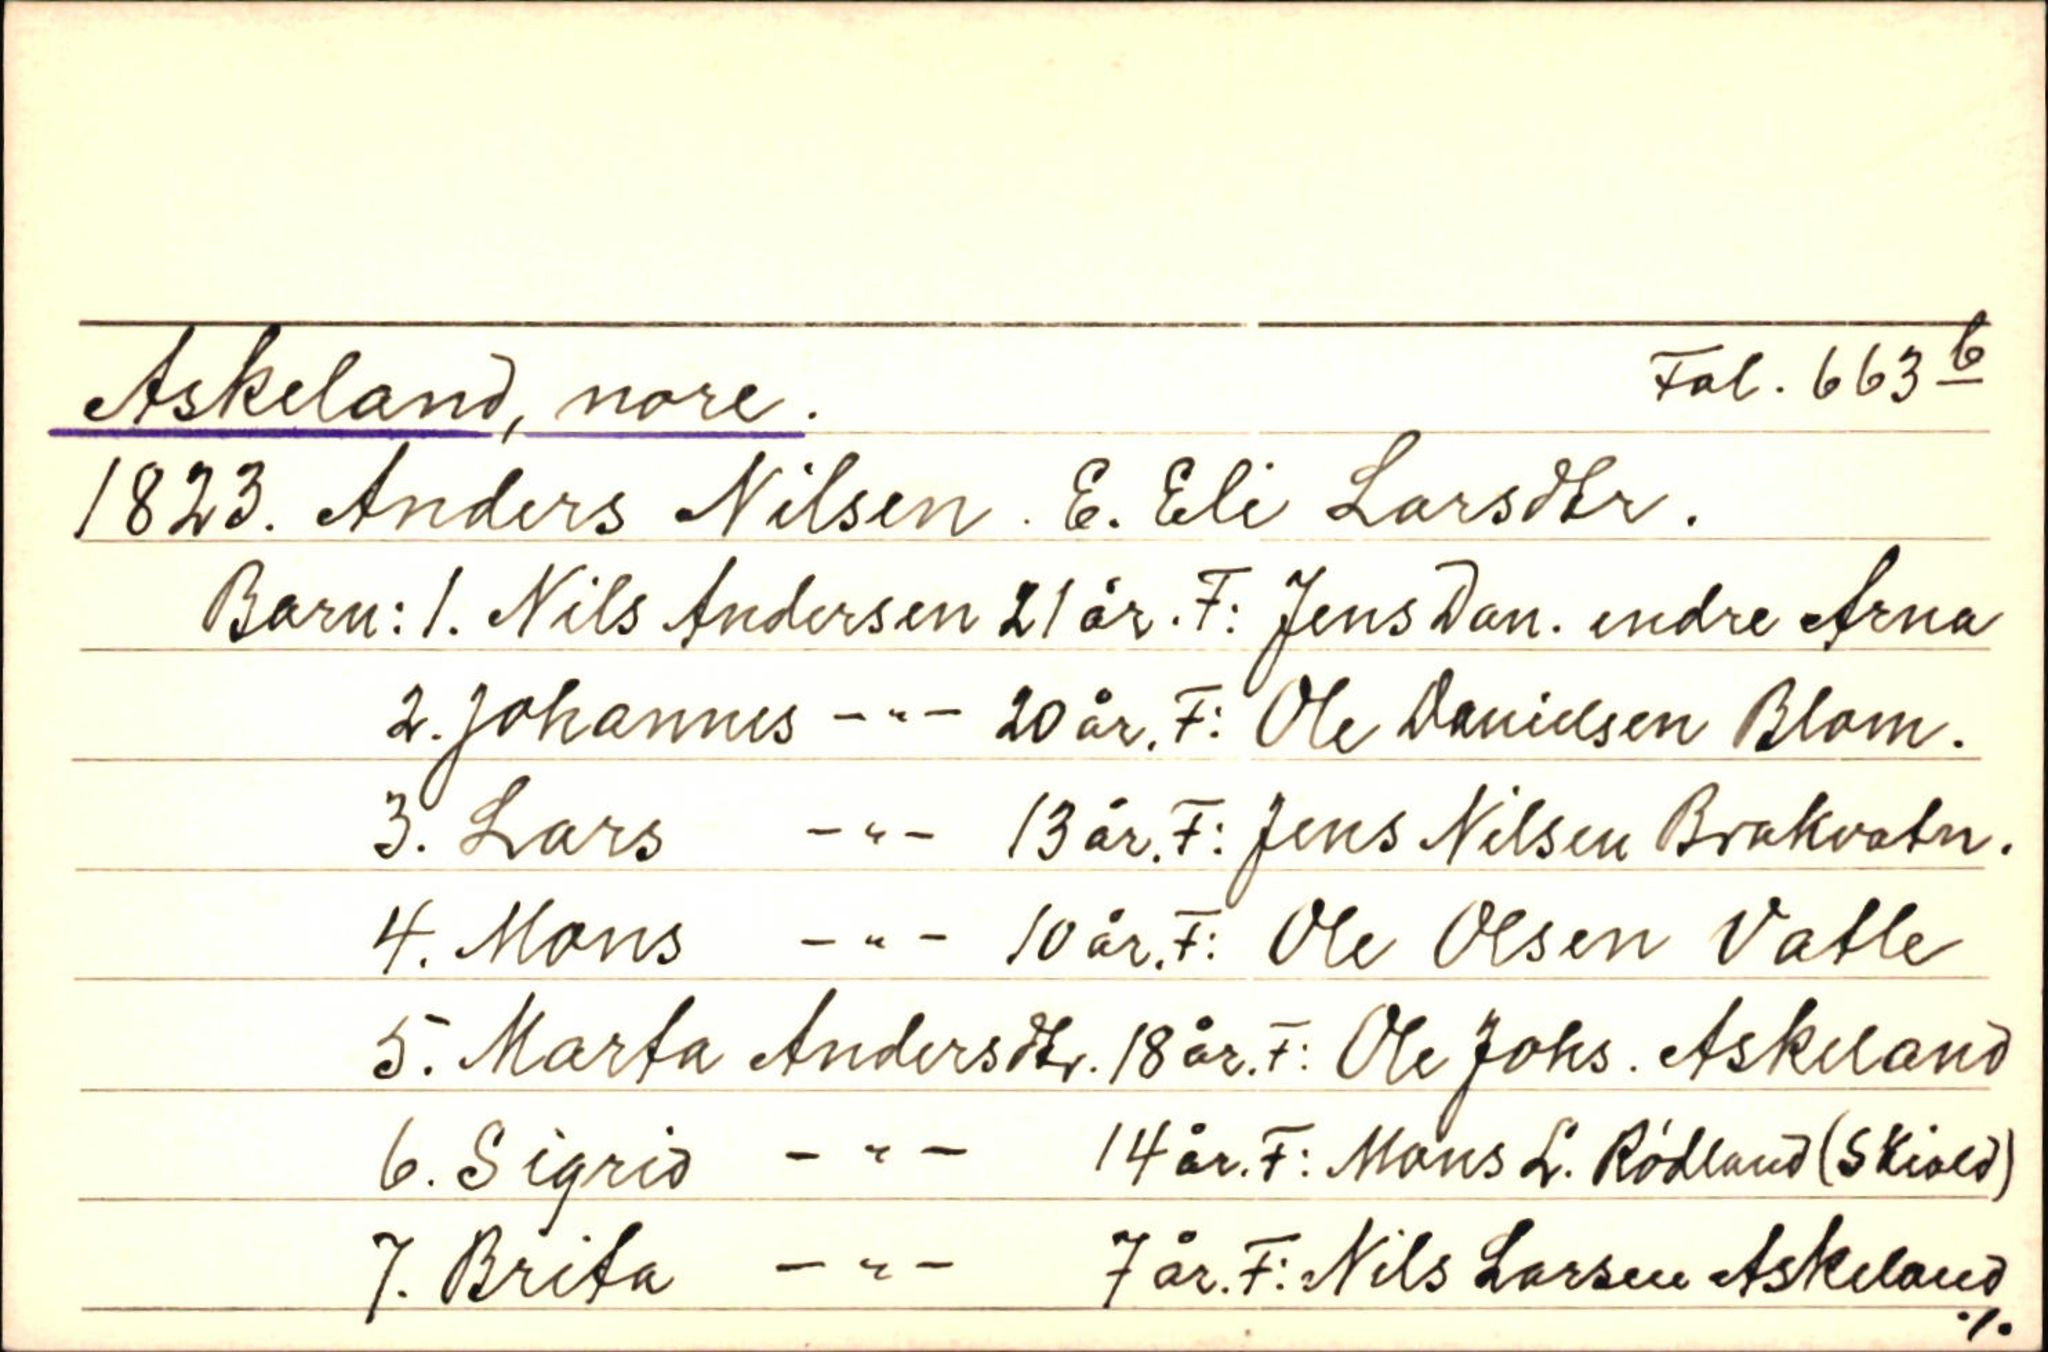 Askeland, nore. Fol. 663 b
1823. Anders Nilsen. E. Eli Larsdtr.
Barn: 1. Nils Andersen 21 år. F: Jens Dan. indre Arna
2. Johannes -"- 20 år. F: Ole Danielsen Blom.
3. Lars -"- 13 år. F: Jens Nilsen Brakvatn.
4. Mons -"- 10 år. F: Ole Olsen Vatle
5. Marta Andersdtr. 18 år. F: Ole Johs. Askeland
6. Sigrid -"- 14 år. F: Mons L. Rödland (Skiold)
7. Brita -"- 7 år. F: Nils Larsen Askeland
./.